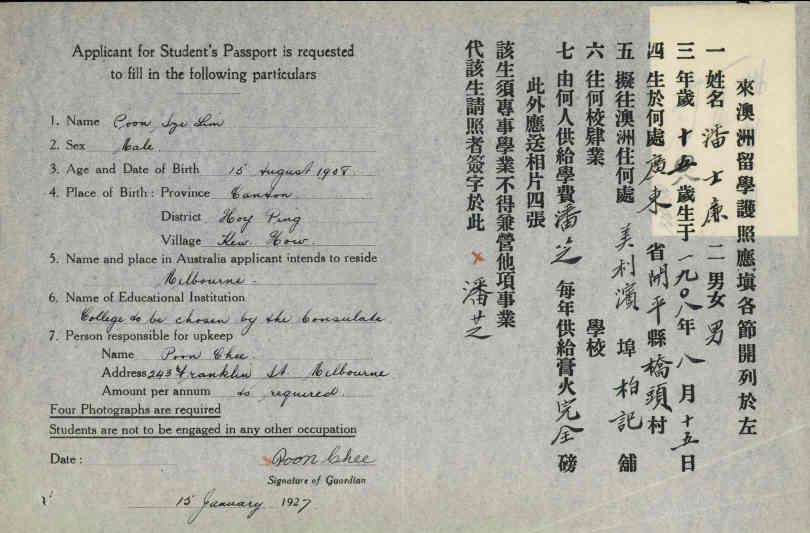 Applicant for Student's Passport is requested
to fill in the following particulars
1. Name Poon Sze Lim
2. Sex Male.
3. Age and Date of Birth 15 August 1908.
4. Place of Birth: Province Canton.
District Hoy Ping
Village Kew How.
5. Name and place in Australia applicant intends to reside
Melbourne.
6. Name of Educational Institution
College to be chosen by the Consulate
7. Person responsible for upkeep
Name Poon Chee.
Address 243 Franklin St. Melbourne
Amount per annum as required.
Four Photographs are required
Students are not to be engaged in any other occupation
Date: Poon Chee
Signature of Guardian
15 January 1927
來澳洲留學護照應填各節開列於左
一 姓名 潘士廉 二 男女 男
三 年歲 十八歲生于一九〇八年八月十五日
四 生於何處廣東省開平縣橋頭村
五 擬往澳洲住何處 美利濱埠柏記舖
六 往何校肄業 學校
七 由何人供給學費潘芝 每年供給膏火完全磅
此外應送相片四張
該生須專事學業不得兼營他項事業
代該生請照者簽字於此 x 潘芝